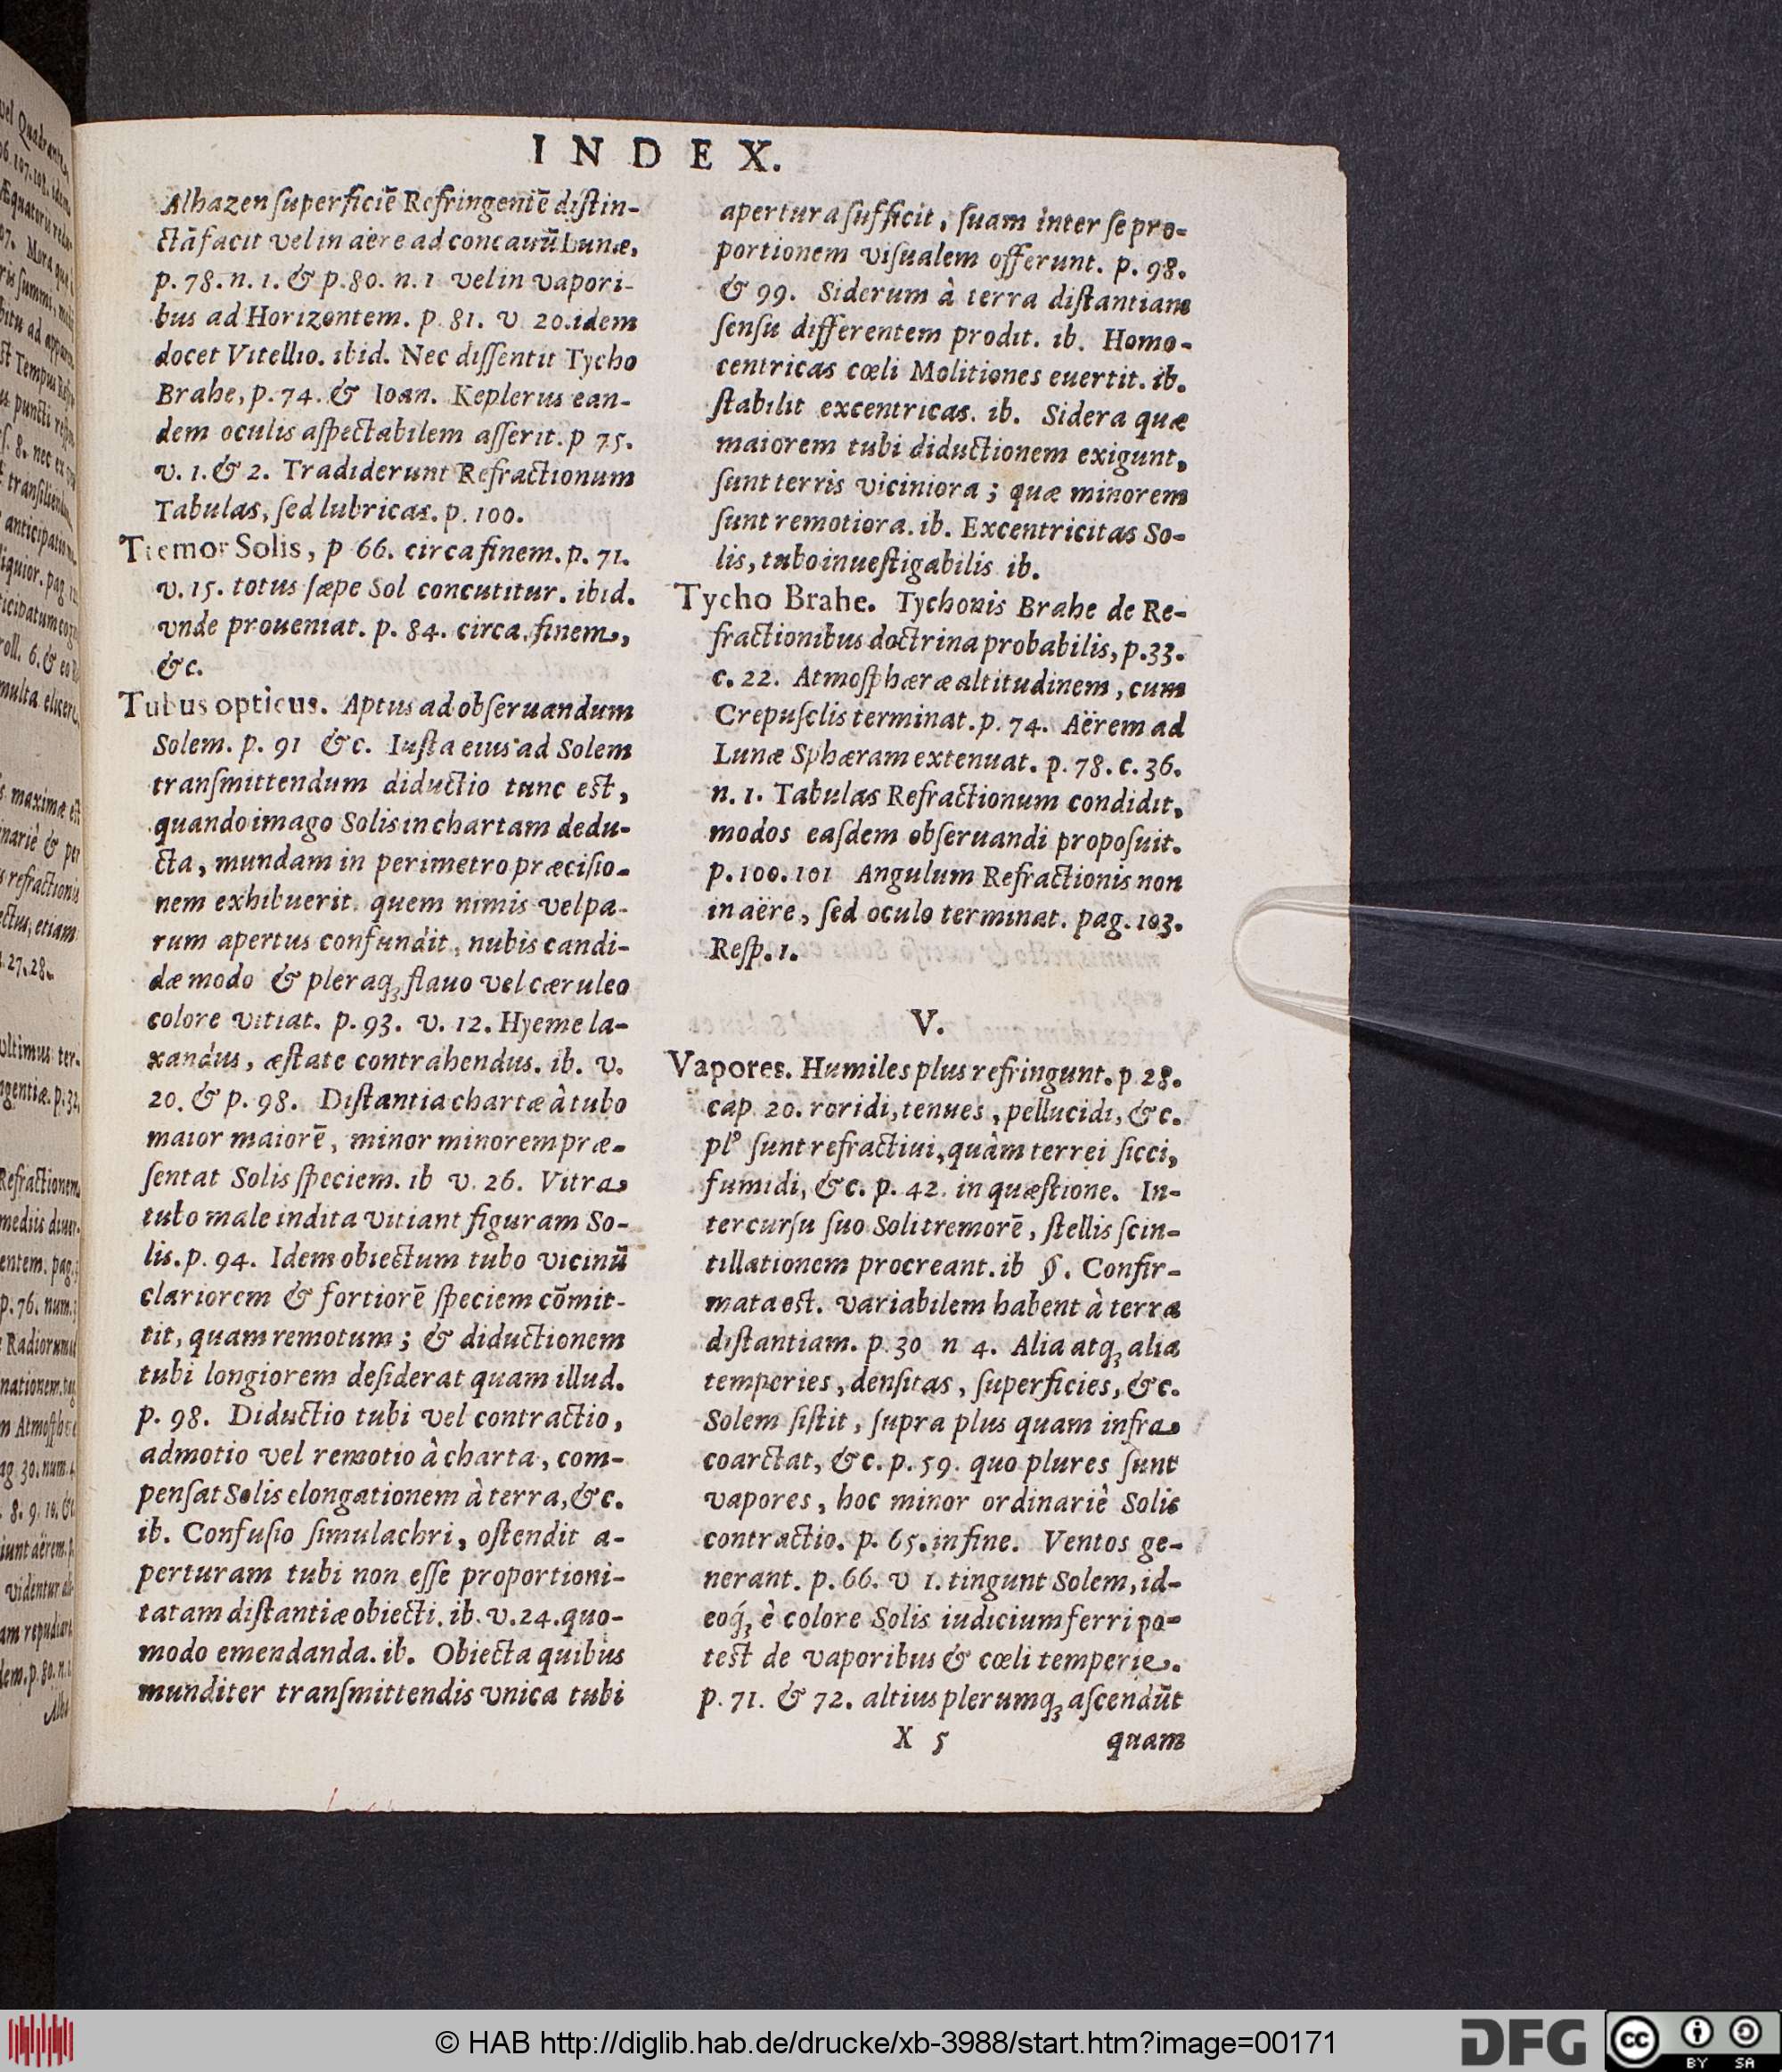 INDEX.
Alhazen ſuperficiē Refringentē diſtin-
ctā facit vel in aëre ad concauū Lunæ,
p. 78. n. 1. & p. 80. n. 1 vel in vapori-
bus ad Horizontem. p 81. v 20. idem
docet Vitellio. ibid. Nec diſſentit Tycho
Brahe, p. 74. & Ioan. Keplerus ean-
dem oculis aſpectabilem aſſerit. p 75.
v. 1. & 2. Tradiderunt Refractionum
Tabulas, ſed lubricas. p. 100.
Tremor Solis, p 66. circa finem. p. 71.
v. 15. totus ſæpe Sol concutitur. ibid.
vnde proueniat. p. 84. circa finem,
&c.
Tubus opticus. Aptus ad obſeruandum
Solem. p. 91 &c. Iuſta eius ad Solem
tranſmittendum diductio tunc eſt,
quando imago Solis in chartam dedu-
cta, mundam in perimetro præciſio-
nem exhibuerit. quem nimis vel pa-
rum apertus confundit, nubis candi-
dæ modo & pleraq; flauo vel cæruleo
colore vitiat. p. 93. v. 12. Hyeme la-
xandus, æſtate contrahendus. ib. v.
20. & p. 98. Diſtantia chartæ à tubo
maior maiorē, minor minorem præ-
ſentat Solis ſpeciem. ib v. 26. Vitra
tubo male indita vitiant figuram So-
lis. p. 94. Idem obiectum tubo vicinū
clariorem & fortiorē ſpeciem cōmit-
tit, quam remotum; & diductionem
tubi longiorem deſiderat quam illud.
p. 98. Diductio tubi vel contractio,
admotio vel remotio à charta, com-
penſat Solis elongationem à terra, &c.
ib. Confuſio ſimulachri, oſtendit a-
perturam tubi non eſſe proportioni-
tatam diſtantiæ obiecti. ib. v. 24. quo-
modo emendanda. ib. Obiecta quibus
munditer tranſmittendis vnica tubi
apertura ſufficit, ſuam inter ſe pro-
portionem viſualem offerunt. p. 98.
& 99. Siderum à terra diſtantiam
ſenſu differentem prodit. ib. Homo-
centricas cœli Molitiones euertit. ib.
ſtabilit excentricas. ib. Sidera quæ
maiorem tubi diductionem exigunt,
ſunt terris viciniora; quæ minorem
ſunt remotiora. ib. Excentricitas So-
lis, tubo inueſtigabilis ib.
Tycho Brahe. Tychonis Brahe de Re-
fractionibus doctrina probabilis, p. 33.
c. 22. Atmoſphæræ altitudinem, cum
Crepuſclis terminat. p. 74. Aërem ad
Lunæ Sphæram extenuat. p. 78. c. 36.
n. 1. Tabulas Refractionum condidit,
modos eaſdem obſeruandi propoſuit.
p. 100. 101 Angulum Refractionis non
in aëre, ſed oculo terminat. pag. 103.
Reſp. 1.
V.
Vapores. Humiles plus refringunt. p 28.
cap. 20. roridi, tenues, pellucidi, &c.
plꝰ ſunt refractiui, quàm terrei ſicci,
fumidi, &c. p. 42. in quæſtione. In-
tercurſu ſuo Soli tremorē, ſtellis ſcin-
tillationem procreant. ib §. Confir-
mata eſt. variabilem habent à terra
diſtantiam. p. 30 n 4. Alia atq; alia
temperies, denſitas, ſuperficies, &c.
Solem ſiſtit, ſupra plus quam infra
coarctat, &c. p. 59. quo plures ſunt
vapores, hoc minor ordinariè Solis
contractio. p. 65. in fine. Ventos ge-
nerant. p. 66. v 1. tingunt Solem, id-
eoq́; è colore Solis iudicium ferri po-
test de vaporibus & cœli temperie.
p. 71. & 72. altius plerumq; aſcendūt
X 5 quam
© HAB http://diglib.hab.de/drucke/xb-3988/start.htm?image=00171
DFG
cc BY SA